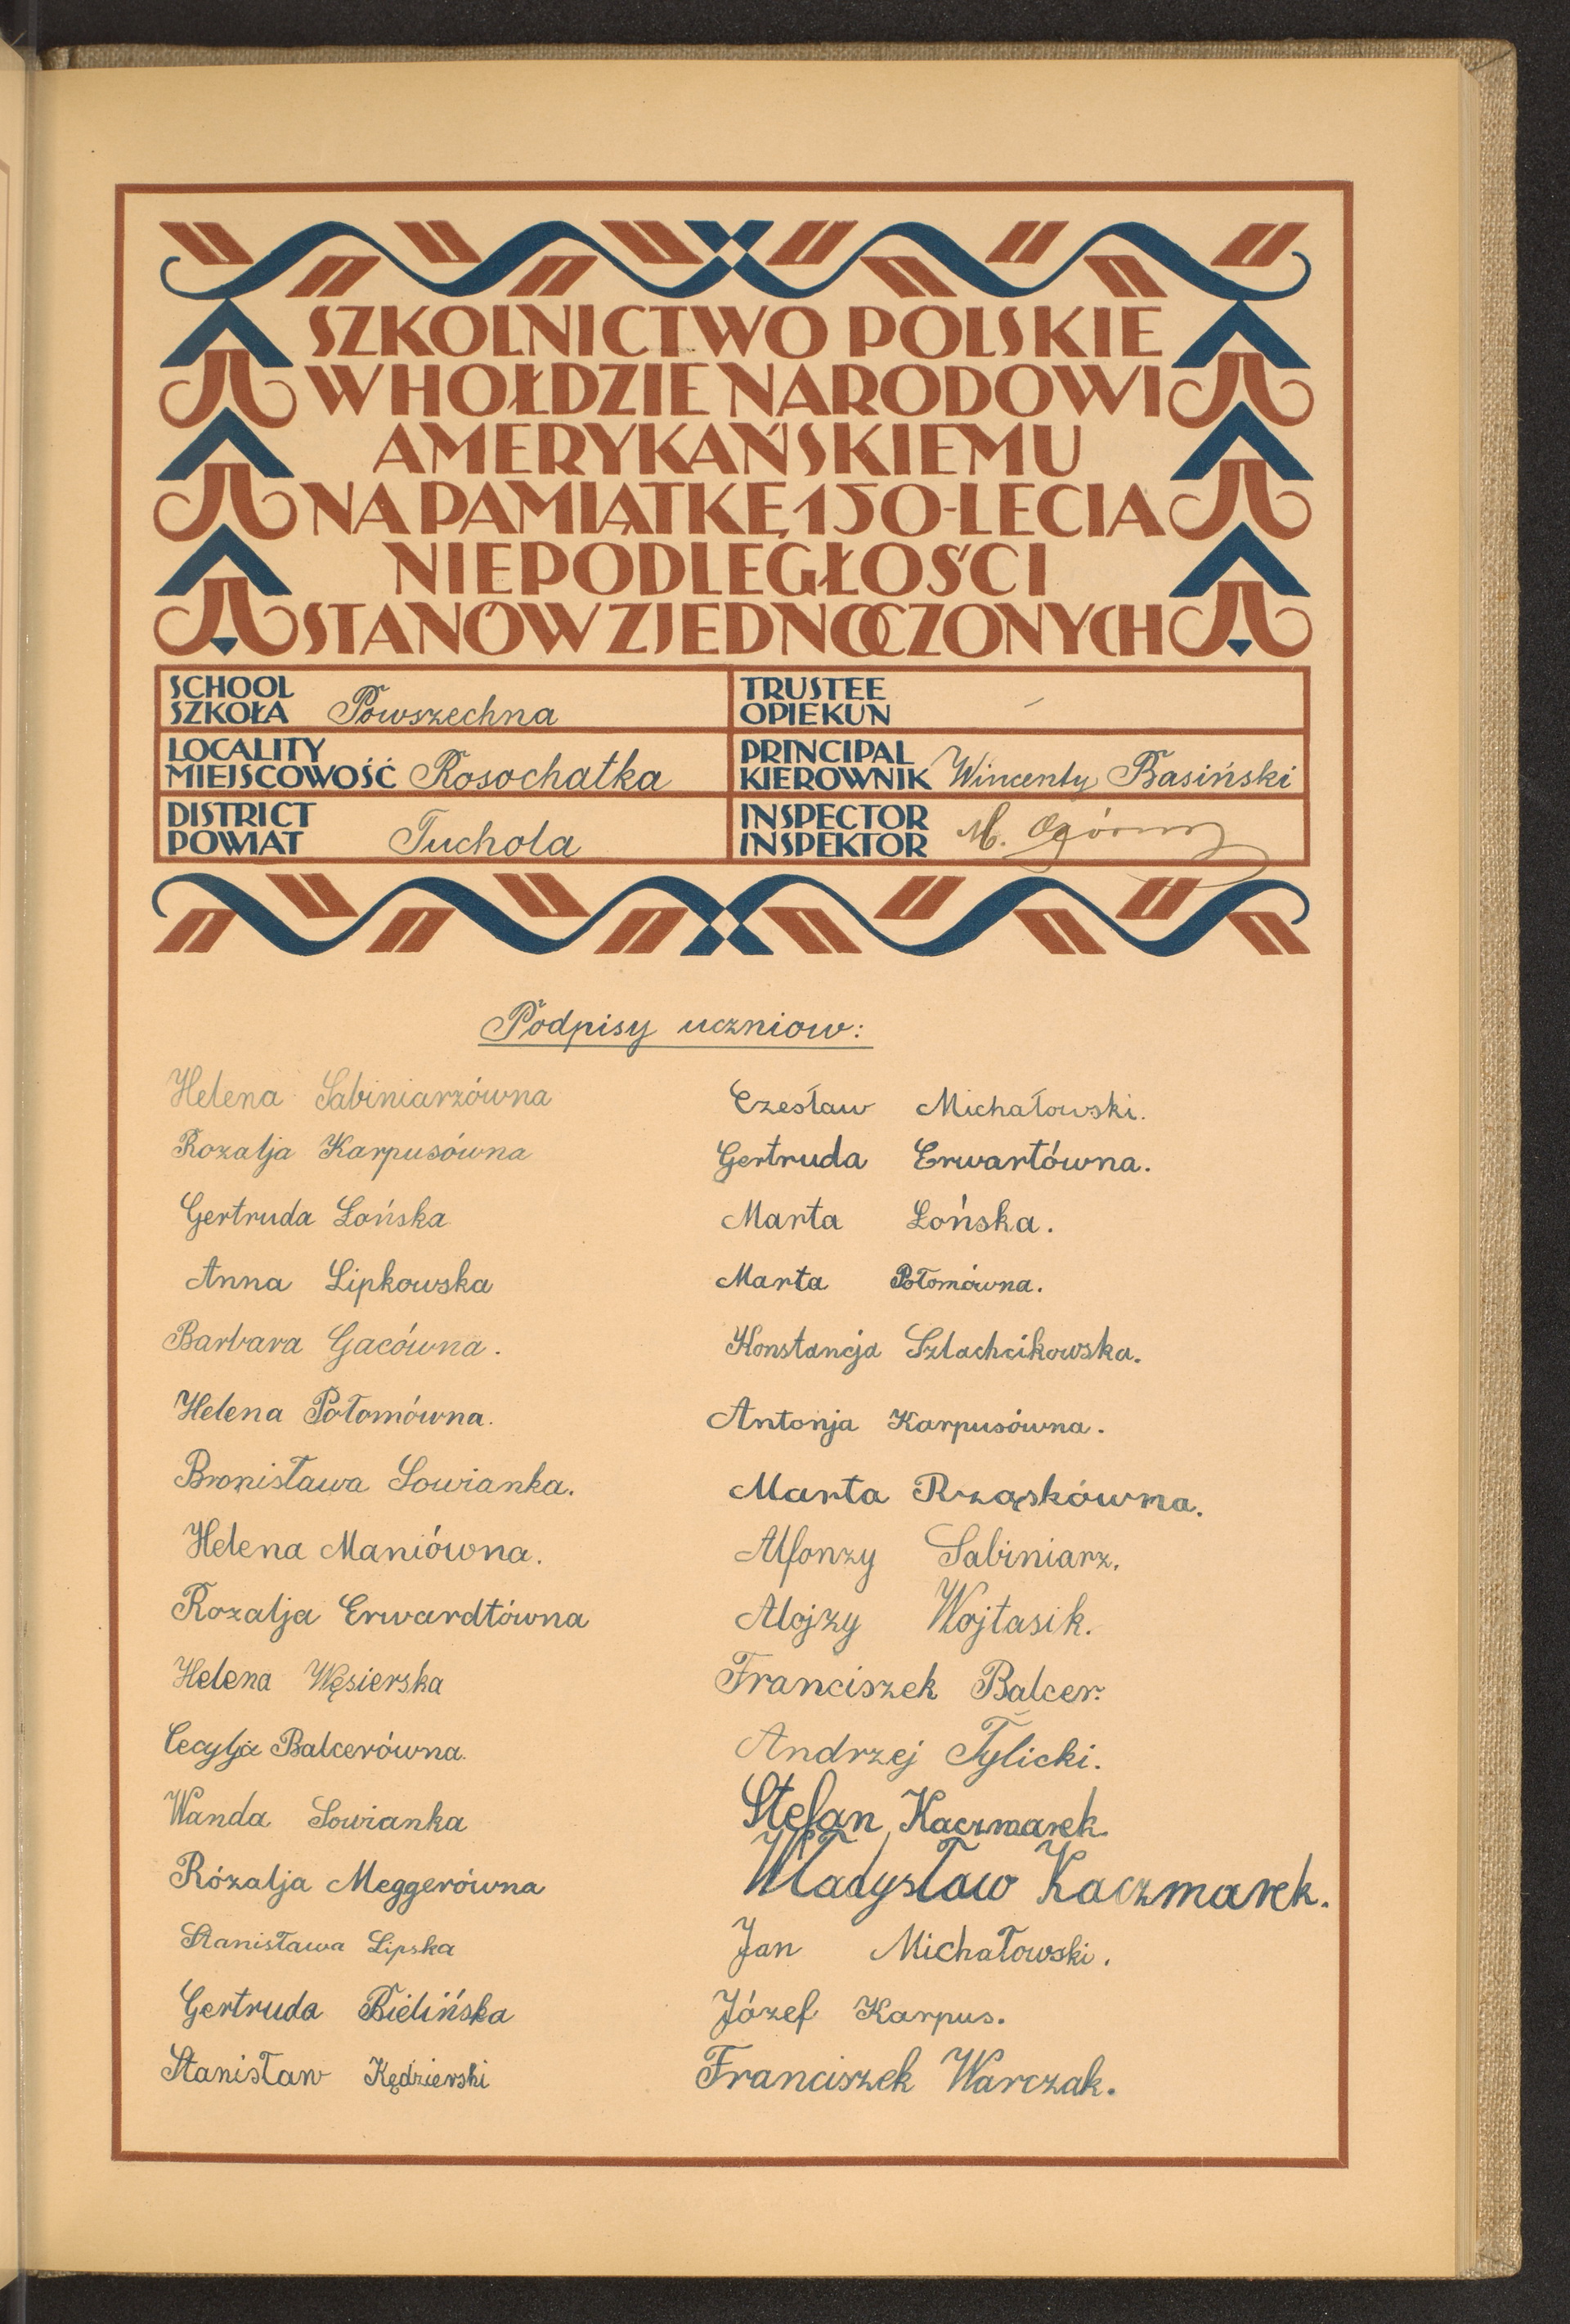 SZKOLNICTWO POLSKIE
W HOŁDZIE NARODOWI
AMERYKAŃSKIEMU
NA PAMIĄTKĘ 150-LECIA
NIEPODLEGŁOŚCI
STANÓW ZJEDNOCZONYCH
SCHOOL
SZKOŁA Powszechna
LOCALITY
MIEJSCOWOŚĆ Rosochatka
DISTRICT
POWIAT Tuchola
TRUSTEE
OPIEKUN –
PRINCIPAL
KIEROWNIK Wincenty Basiński
INSPECTOR
INSPEKTOR M.
Podpisy uczniow:
Helena Sabiniarzówna
Rozalja Karpusówna
Gertruda Łońska
Anna Lipkowska
Barbara Gacówna.
Helena Połomówna.
Bronisława Sowianka.
Helena Maniówna.
Rozalja Erwardtówna
Helena Węsierska
Cecylja Balcerówna.
Wanda Sowianka
Rózalja Meggerówna
Stanisława Lipska
Gertruda Bielińska
Stanisław Kędzierski
Czesław Michałowski.
Gertruda Erwartówna.
Marta Łońska.
Marta Połomówna.
Konstancja Szlachcikowska.
Antonja Karpusówna.
Marta Rząskówna.
Alfonzy Sabiniarz.
Alojzy Wojtasik.
Franciszek Balcer.
Andrzej Tylicki.
Stefan Kaczmarek.
Władysław Kaczmarek.
Jan Michałowski.
Józef Karpus.
Franciszek Warczak.